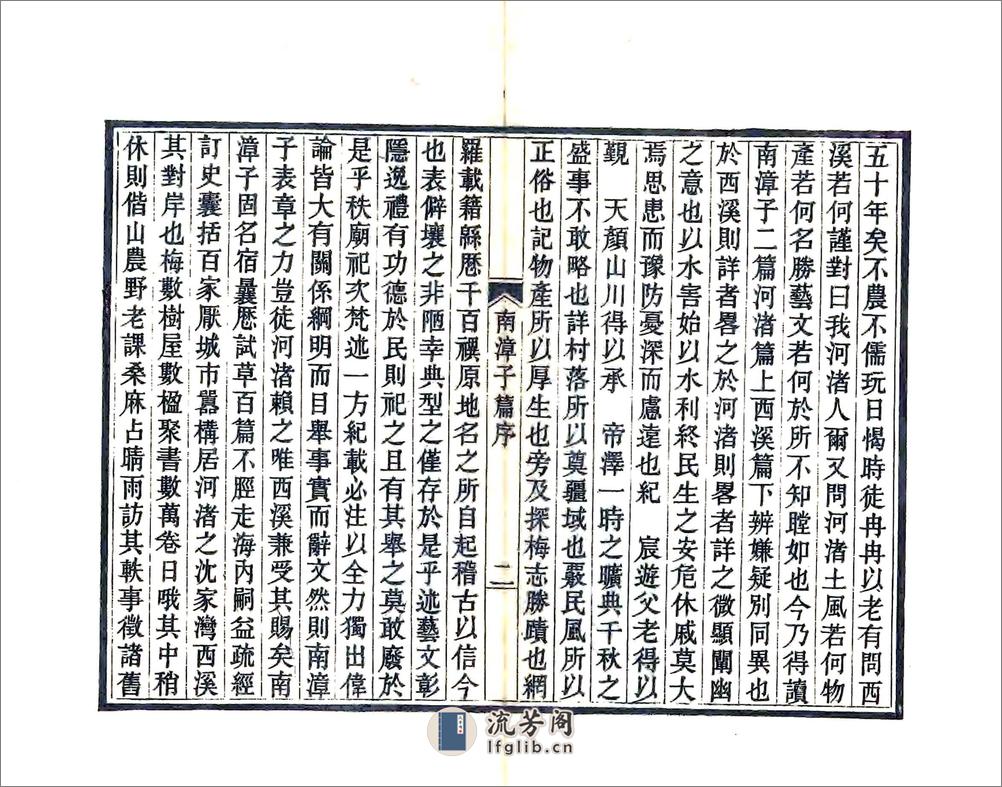 五十年矣不農不儒玩日愒時徒冉冉以老有問西
溪若何謹對曰我河渚人爾又問河渚土風若何物
產若何名勝藝文若何於所不知瞠如也今乃得讀
南漳子二篇河渚篇上西溪篇下辨嫌疑別同異也
於西溪則詳者畧之於河渚則畧者詳之微顯闡幽
之意也以水害始以水利終民生之安危休戚莫大
焉思患而豫防憂深而慮遠也紀　宸遊父老得以
覲　天顏山川得以承　帝澤一時之曠典千秋之
盛事不敢略也詳村落所以奠疆域也覈民風所以
正俗也記物產所以厚生也旁及探梅志勝蹟也網
南漳子篇序　二
羅載籍緜歷千百禩原地名之所自起稽古以信今
也表僻壤之非陋幸典型之僅存於是乎述藝文彰
隱逸禮有功德於民則祀之且有其舉之莫敢廢於
是乎秩廟祀次梵述一方紀載必注以全力獨出偉
論皆大有關係綱明而目舉事實而辭文然則南漳
子表章之力豈徒河渚賴之唯西溪兼受其賜矣南
漳子固名宿曩歷試草百篇不脛走海內嗣益疏經
訂史囊括百家厭城市囂構居河渚之沈家灣西溪
其對岸也梅數樹屋數楹聚書數萬卷日哦其中稍
休則偕山農野老課桑麻占晴雨訪其軼事徵諸舊
流芳阁
lfglib.cn